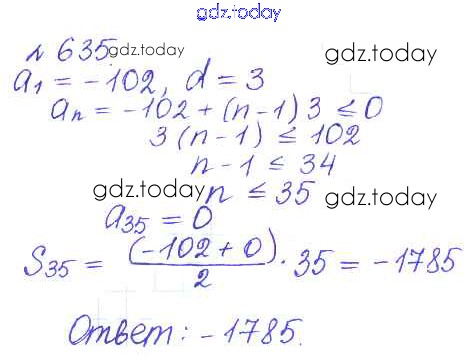 gdz.today
№ 635. gdz.today gdz.today
a₁ = -102, d = 3
aₙ = -102 + (n-1) 3 ≤ 0
3 (n-1) ≤ 102
n - 1 ≤ 34
gdz.today n ≤ 35 gdz.today
a₃₅ = 0
S₃₅ = (-102 + 0)/2 · 35 = -1785
Ответ: -1785.